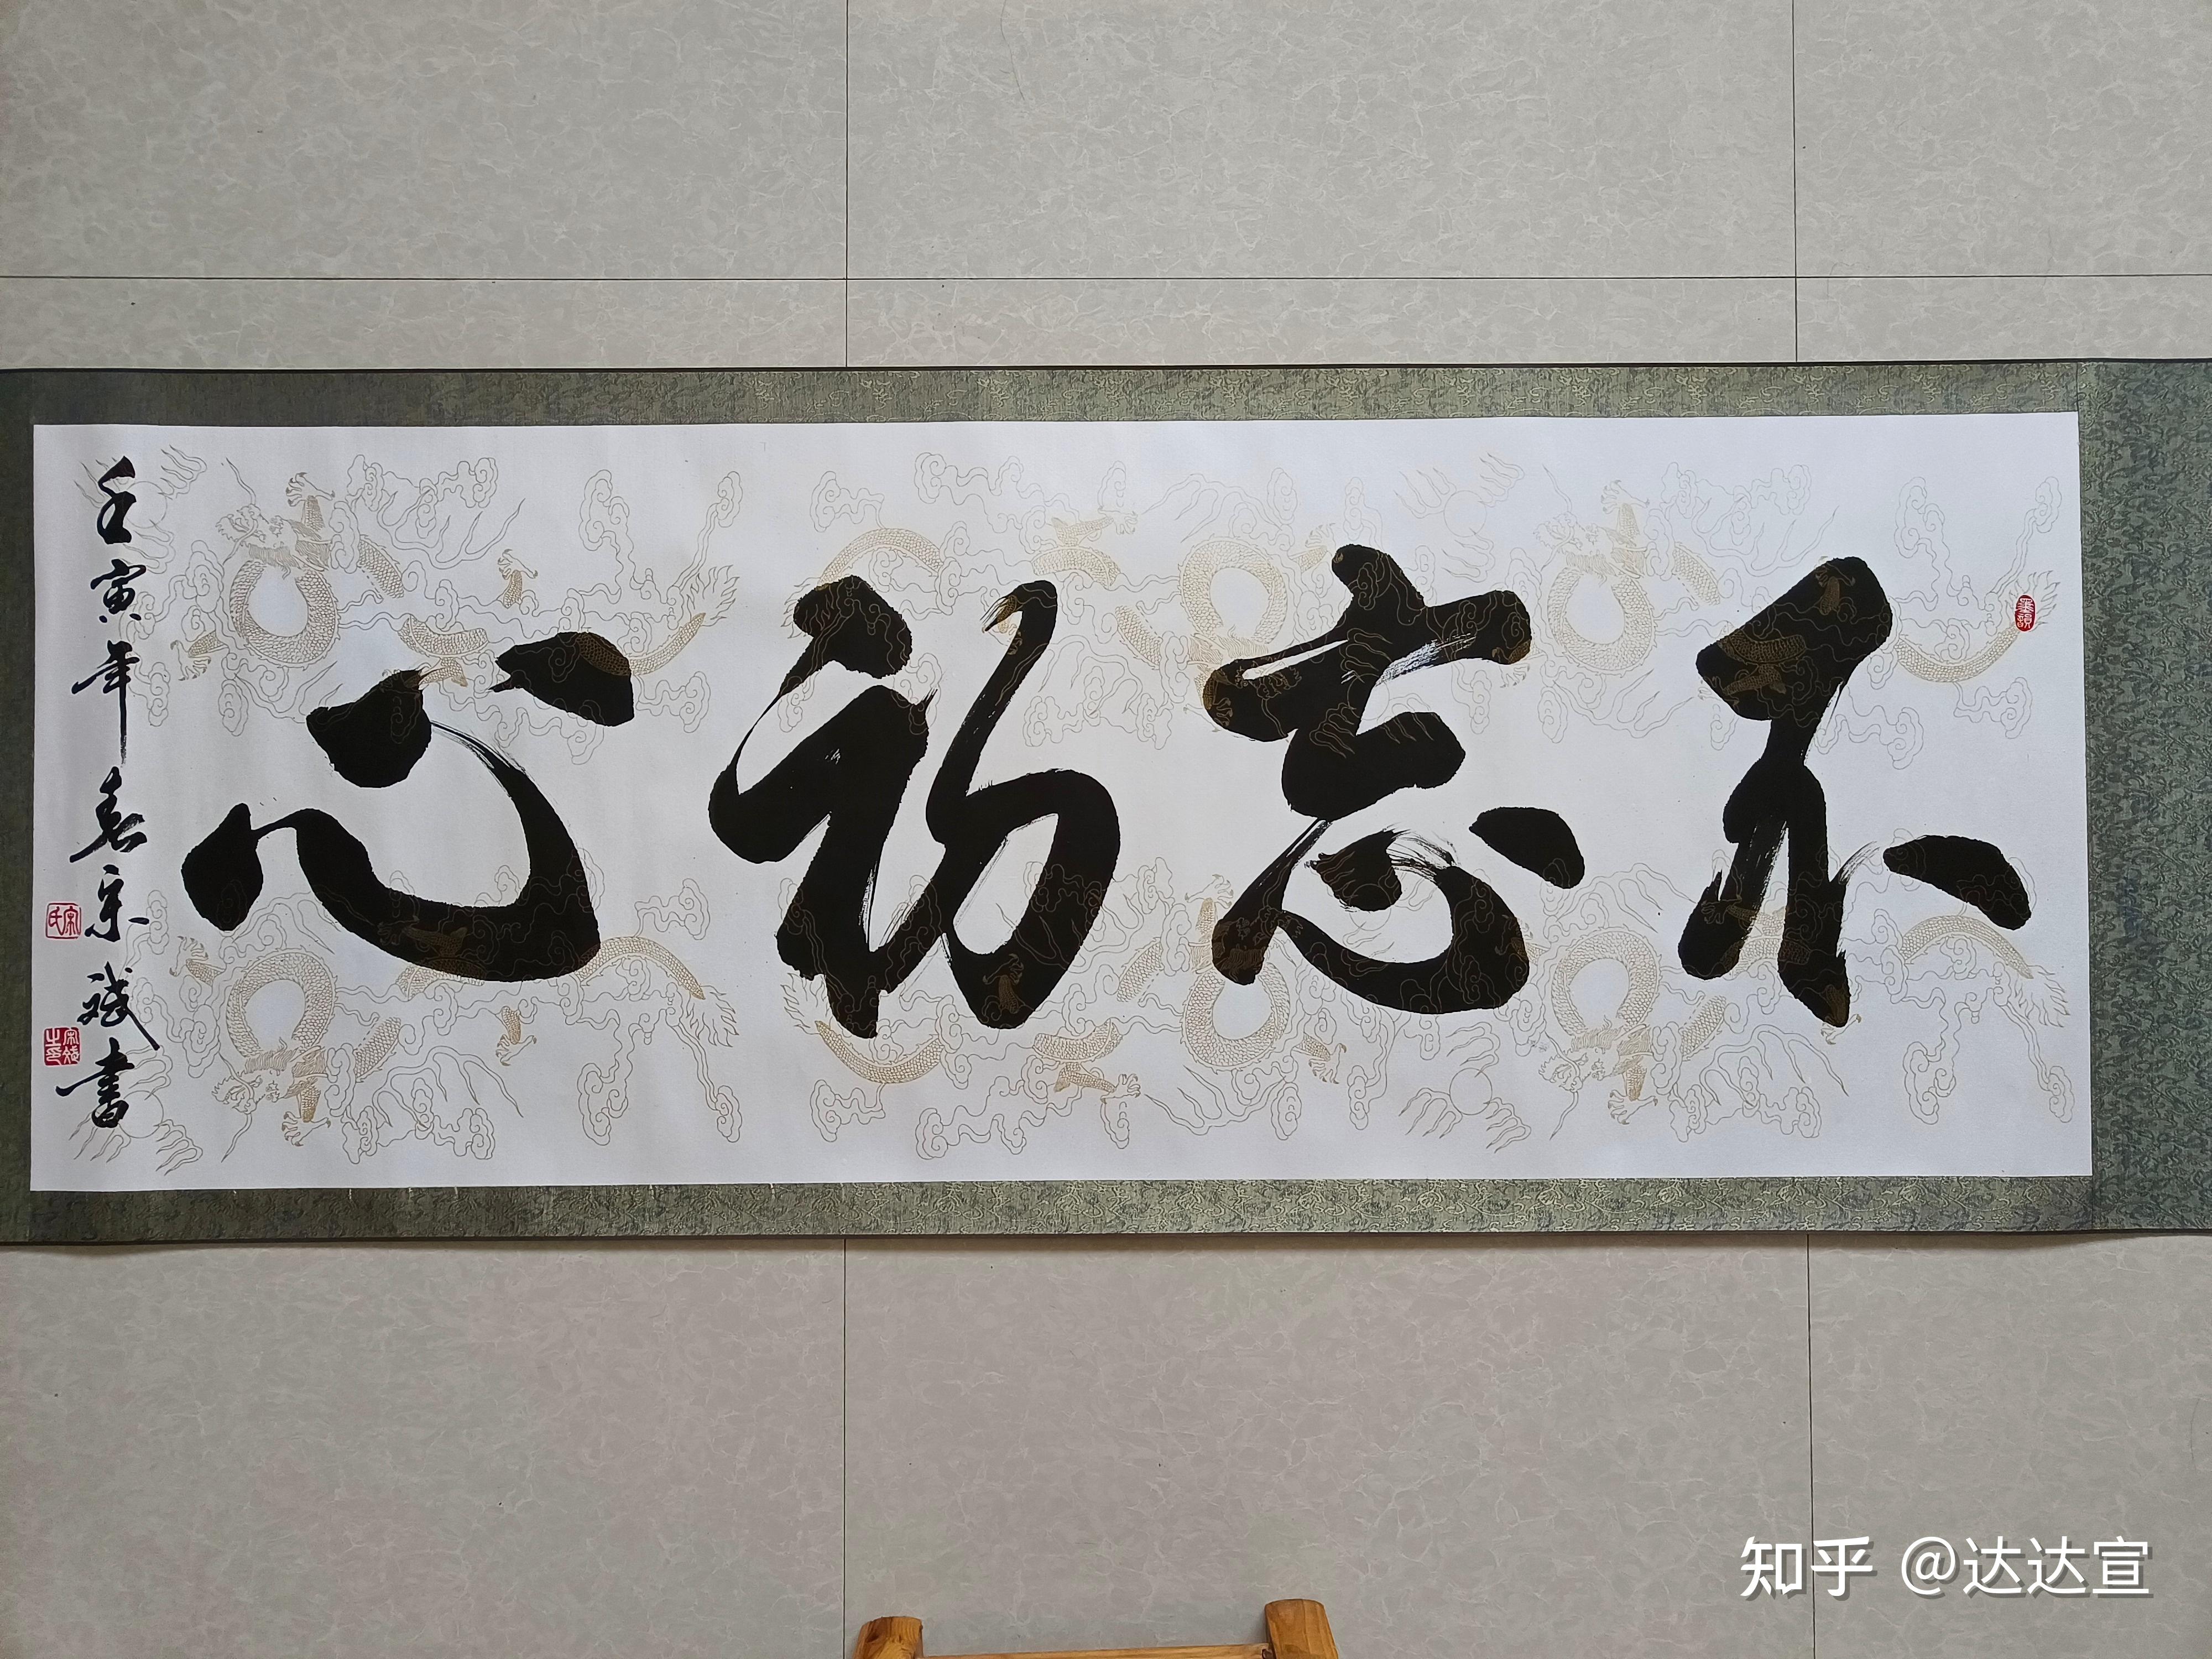 不忘初心
壬寅年春宗斌书
宋氏
知乎 @达达宣